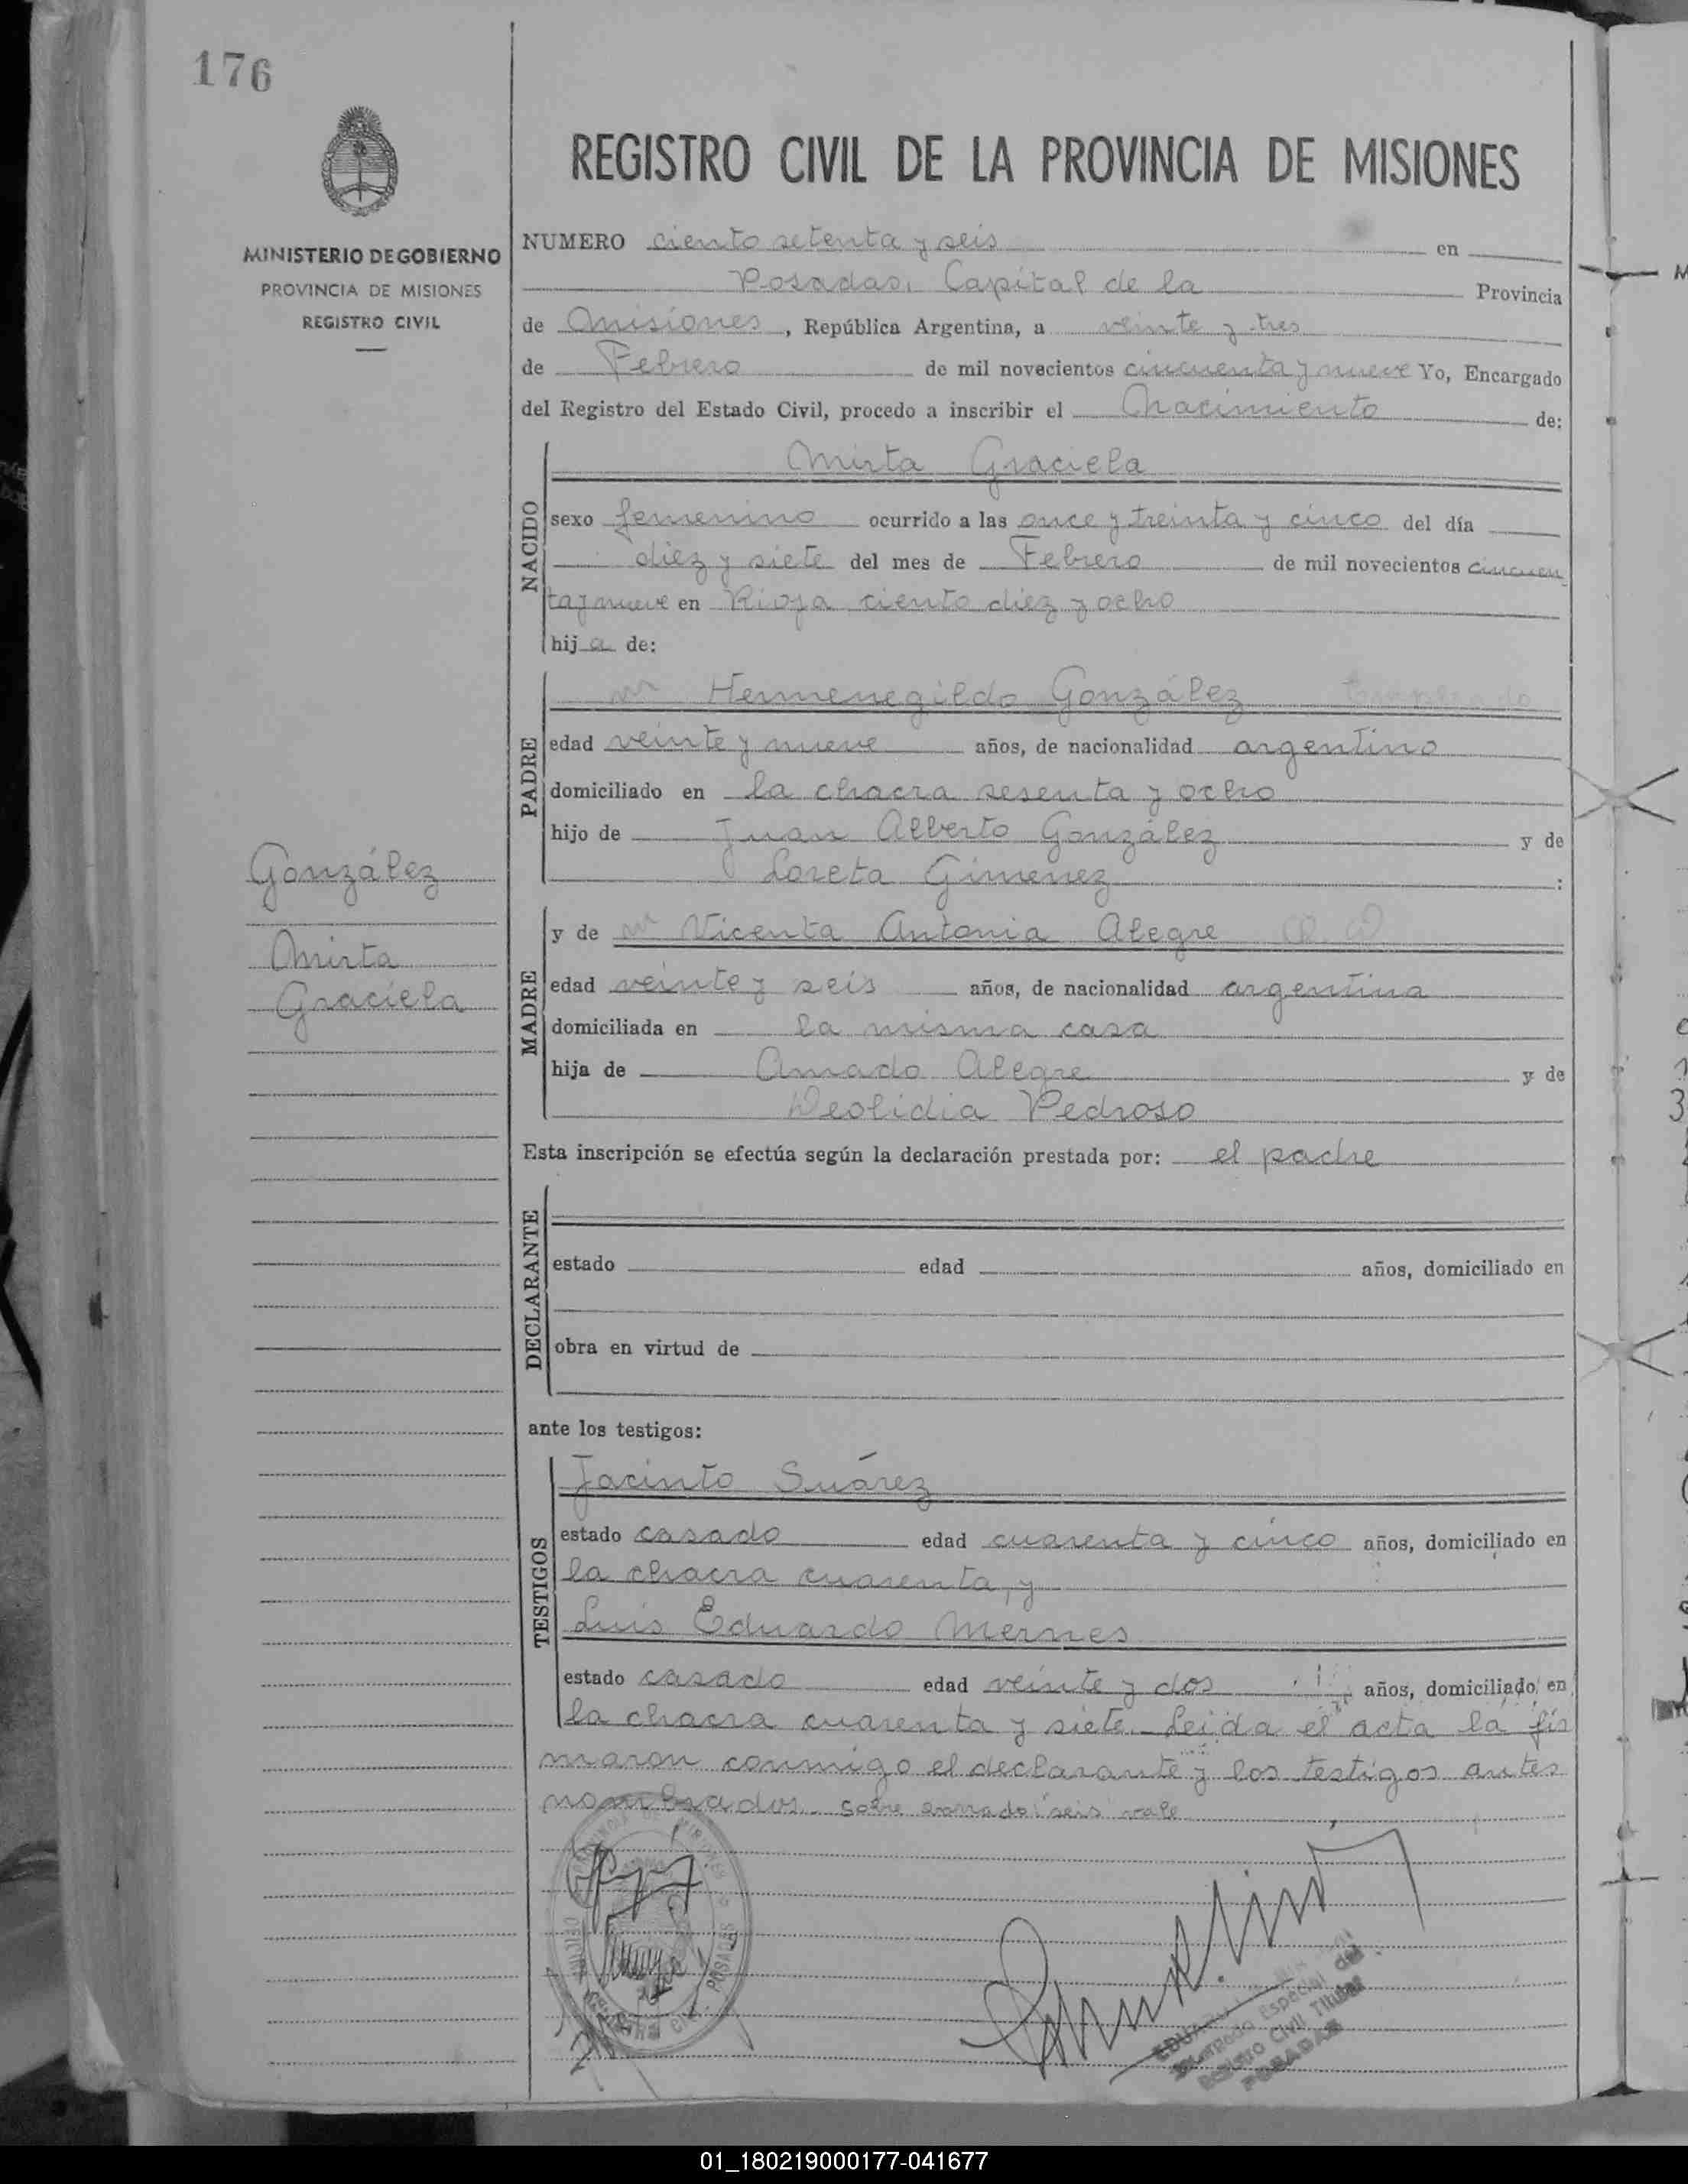 176
MINISTERIO DE GOBIERNO
PROVINCIA DE MISIONES
REGISTRO CIVIL
REGISTRO CIVIL DE LA PROVINCIA DE MISIONES
NUMERO ciento setenta y seis en
Posadas, Capital de la Provincia
de Misiones, República Argentina, a veinte y tres
de Febrero de mil novecientos cincuenta y nueve Yo, Encargado
del Registro del Estado Civil, procedo a inscribir el Nacimiento de:
NACIDO
Mirta Graciela
sexo femenino ocurrido a las once y treinta y cinco del día
diez y siete del mes de Febrero de mil novecientos cincuen
ta y nueve en Rioja ciento diez y ocho
hija de:
PADRE
Hermenegildo González Empleado
edad veinte y nueve años, de nacionalidad argentino
domiciliado en la chacra sesenta y ocho
hijo de Juan Alberto González y de
Loreta Gimenez :
González
Mirta
Graciela
MADRE
y de Vicenta Antonia Alegre
edad veinte y seis años, de nacionalidad argentina
domiciliada en la misma casa
hija de Amado Alegre y de
Deolidia Pedroso
Esta inscripción se efectúa según la declaración prestada por: el padre
DECLARANTE
estado edad años, domiciliado en
obra en virtud de
ante los testigos:
TESTIGOS
Jacinto Suárez
estado casado edad cuarenta y cinco años, domiciliado en
la chacra cuarenta, y
Luis Eduardo Mernes
estado casado edad veinte y dos años, domiciliado en
la chacra cuarenta y siete. Leida el acta la fir
maron conmigo el declarante y los testigos antes
nombrados. Sobre borrado "seis" vale
Encargado Especial del
Registro Civil Titular
POSADAS
01_180219000177-041677